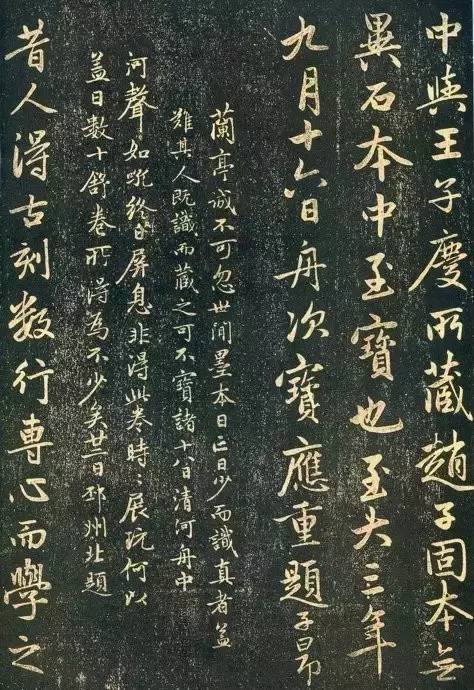 中與王子慶所藏趙子固本無
異石本中至寶也至大三年
九月十六日舟次寶應重題子昂
蘭亭誠不可忽世間墨本日亡日少而識真者蓋
難其人既識而藏之可不寶諸十八日清河舟中
河聲如吼終日屏息非得此卷時〻展玩何以
蓋日數十舒卷所得為不少矣廿二日邳州北題
昔人得古刻數行專心而學之